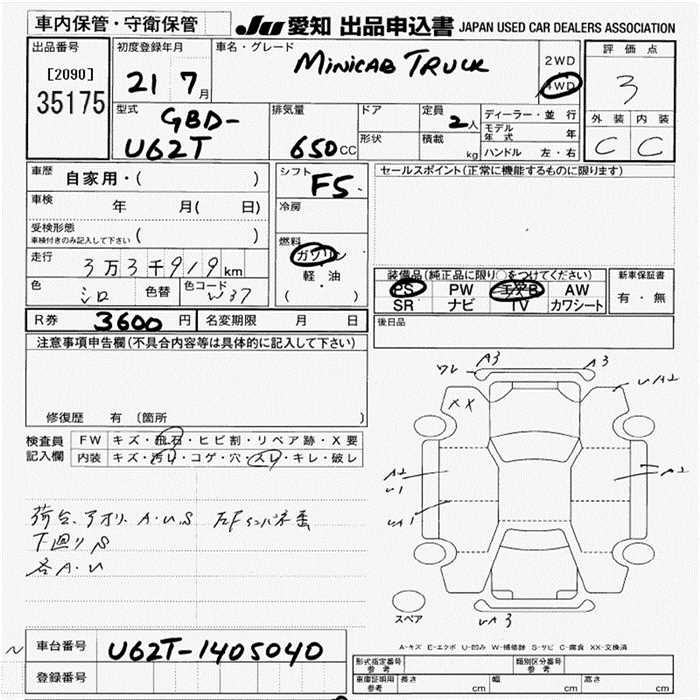 車内保管・守衛保管
JU 愛知 出品申込書 JAPAN USED CAR DEALERS ASSOCIATION
出品番号
[2090]
35175
初度登録年月
21 7月
車名・グレード
MINICAB TRUCK
2WD
4WD
評価点
3
外装 内装
C C
型式
GBD-
U62T
排気量
650CC
ドア
形状
定員
2人
積載
kg
ディーラー・並行
モデル年式 年
ハンドル 左・右
車歴
自家用・( )
車検
年 月( 日)
受検形態
車検付きのみ記入して下さい ( )
走行
3万3千919km
色
シロ
色替
色コード
W37
シフト
F5
冷房
燃料
ガソリン
軽・油
( )
セールスポイント(正常に機能するものに限ります)
装備品(純正品に限り○をつけてください)
PS PW エアB AW
SR ナビ TV カワシート
新車保証書
有・無
R券 3600円
名変期限 月 日
後日品
注意事項申告欄(不具合内容等は具体的に記入して下さい)
修復歴 有 〔箇所 〕
検査員
記入欄
FW キズ・飛石・ヒビ割・リペア跡・X要
内装 キズ・汚れ・コゲ・穴・スレ・キレ・破レ
荷台、アオリ A.U.S
下廻りS
各A.U
ワレ A3 A3
XX
A2
U1
A2
UA3
スペア
A-キズ E-エクボ U-凹み W-補修跡 S-サビ C-腐食 XX-交換済
車台番号
U62T-1405040
登録番号
型式指定番号
参考
類別区分番号
参考
車庫証明用
参考
長さ cm 幅 cm 高さ cm